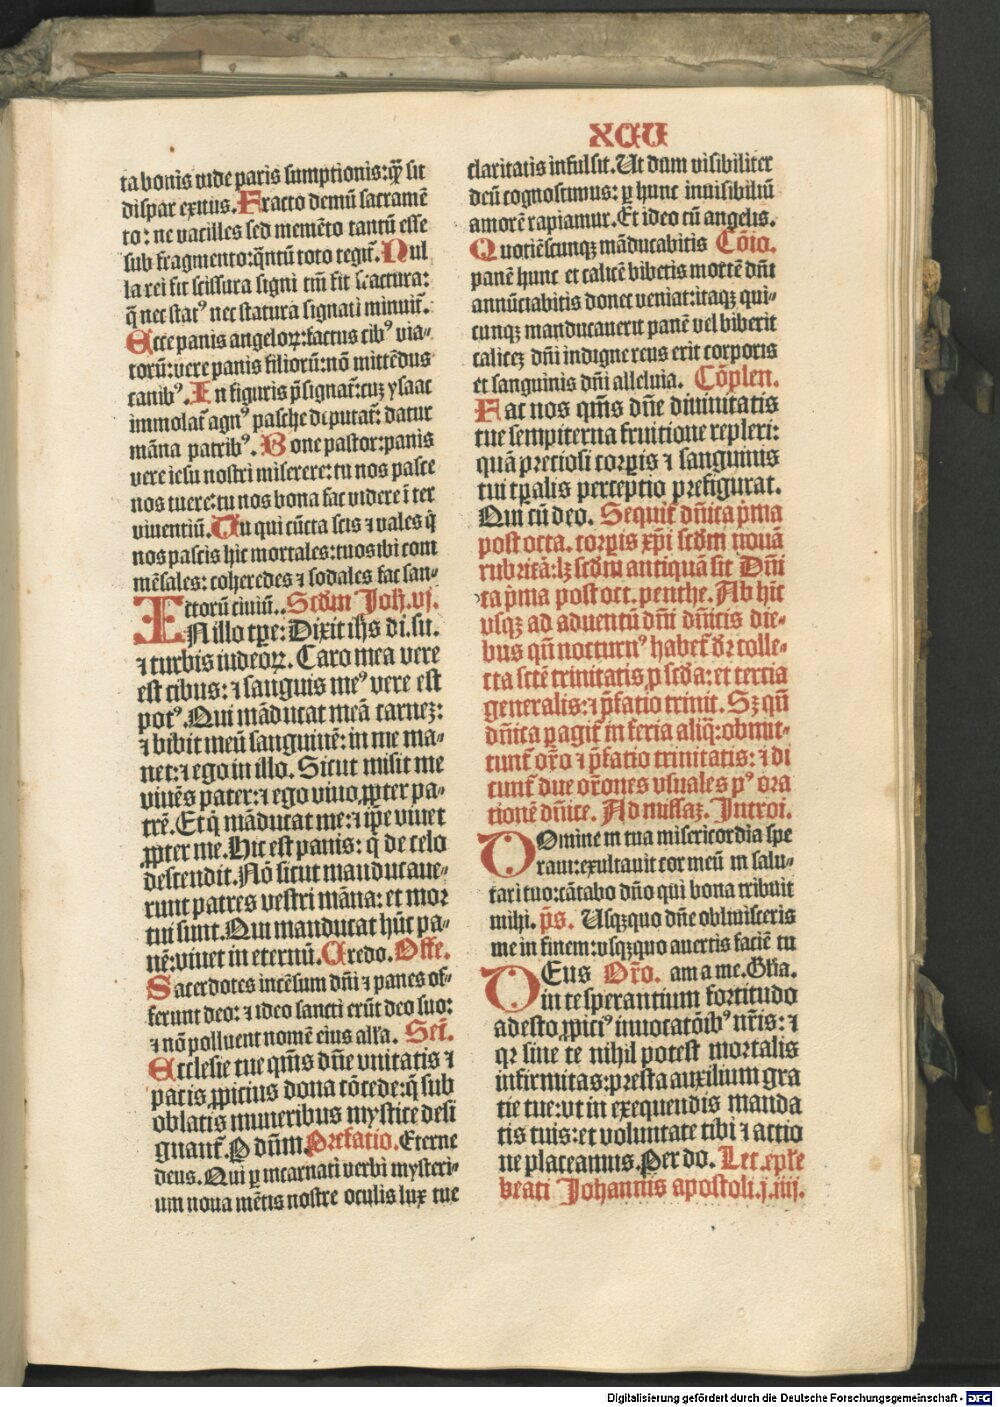 XCV
ta bonis vide paris sumptionis:qͣ sit
dispar exitus.Fracto demū sacramē
to: ne vacilles sed memēto tantū esse
sub fragmento:qͣntū toto tegit̄.Nul
la rei fit scissura signi tm̄ fit fractura:
q̄ nec statꝰ nec statura signati minuit̄.
Ecce panis angeloꝝ:factus cibꝰ via⸗
torū:vere panis filiorū:nō mittēdus
canibꝰ.In figuris p̄signat̄:cuꝫ ysaac
immolat̄ agnꝰ pasche deputat̄: datur
māna patribꝰ.Bone pastor:panis
vere iesu nostri miserere:tu nos pasce
nos tuere:tu nos bona fac videre ī ter
viventiū.Tu qui cūcta scis ⁊ vales q̇
nos pascis hic mortales:tuos ibi com
mēsales: coheredes ⁊ sodales fac san⸗
ctorū civiū.. Scd̄m Joh̄.vj.
IN illo tꝑe: Dixit ih̄s di.su.
⁊ turbis iudeoꝝ. Caro mea vere
est cibus: ⁊ sanguis meꝰ vere est
potꝰ.Qui māducat meā carneꝫ:
⁊ bibit meū sanguinē: in me ma⸗
net:⁊ ego in illo. Sicut misit me
vivēs pater:⁊ ego vivo ꝓpter pa⸗
trē.Et q̇ māducat me:⁊ ip̄e vivet
ꝓpter me.Hic est panis: q̇ de celo
descendit.Nō sicut manducave⸗
runt patres vestri māna: et mor
tui sunt.Qui manducat hūc pa⸗
nē:vivet in eternū.Credo. Offe.
Sacerdotes incēsum dn̄i ⁊ panes of⸗
ferunt deo: ⁊ ideo sancti erūt deo suo:
⁊ nō polluent nomē eius all'a. Sec̄.
Ecclesie tue qm̄s dn̄e vnitatis ⁊
pacis ꝓpicius dona cōcede:q̄ sub
oblatis muneribus mystice desi
gnant̄.P dn̄m. Prefatio. Eterne
deus.Qui ꝑ incarnati verbi mysteri⸗
um nova mētis nostre oculis lux tue
claritatis infulsit.Ut dum visibiliter
deū cognoscimus: ꝑ hunc invisibiliū
amorē rapiamur.Et ideo cū angelis.
Quotiēscunqꝫ māducabitis Cōio.
panē hunc et calicē bibetis mortē dn̄i
annūciabitis donec veniat:itaqꝫ qui⸗
cunqꝫ manducaverit panē vel biberit
caliceꝫ dn̄i indigne reus erit corporis
et sanguinis dn̄i alleluia. Cōplen.
Fac nos qm̄s dn̄e divinitatis
tue sempiterna fruitione repleri:
quā preciosi corꝑis ⁊ sanguinis
tui tꝑalis perceptio prefigurat.
Qui cū deo. Sequit̄ dn̄ica ṗma
post octa. corꝑis xp̄i scd̄m novā
rubricā:lꝫ scd̄m antiquā sit Dn̄i
ca ṗma post oct. penthe. Ab hīc
vsqꝫ ad adventū dn̄i dn̄icis die⸗
bus qn̄ nocturnꝰ habet̄ dr̄ colle⸗
cta scte̅ trinitatis ꝑ scd̄a: et tercia
generalis: ⁊ p̄fatio trinit. Sꝫ qn̄
dn̄ica ꝑagit̄ in feria aliq̇:obmit⸗
tunt̄ or̄o ⁊ p̄fatio trinitatis: ⁊ di
cunt̄ due or̄ones vsuales pꝰ ora
tionē dn̄ice. Ad missaꝫ. Introi.
DOmine in tua misericordia spe
ravi:exultavit cor meū in salu⸗
tari tuo:cātabo dn̄o qui bona tribuit
mihi. p̄s. Usqꝫquo dn̄e obliuisceris
me in finem:vsqꝫquo avertis faciē tu
DEus Or̄o. am a me. Gl'ia.
in te sperantium fortitudo
adesto ꝓpiciꝰ invocatōibꝰ nr̄is: ⁊
qꝛ sine te nihil potest mortalis
infirmitas:presta auxilium gra
tie tue:vt in exequendis manda
tis tuis:et voluntate tibi ⁊ actio
ne placeamus.Per do. Lec.ep̄le
beati Johannis apostoli.j.iiij.
Digitalisierung gefördert durch die Deutsche Forschungsgemeinschaft - DFG